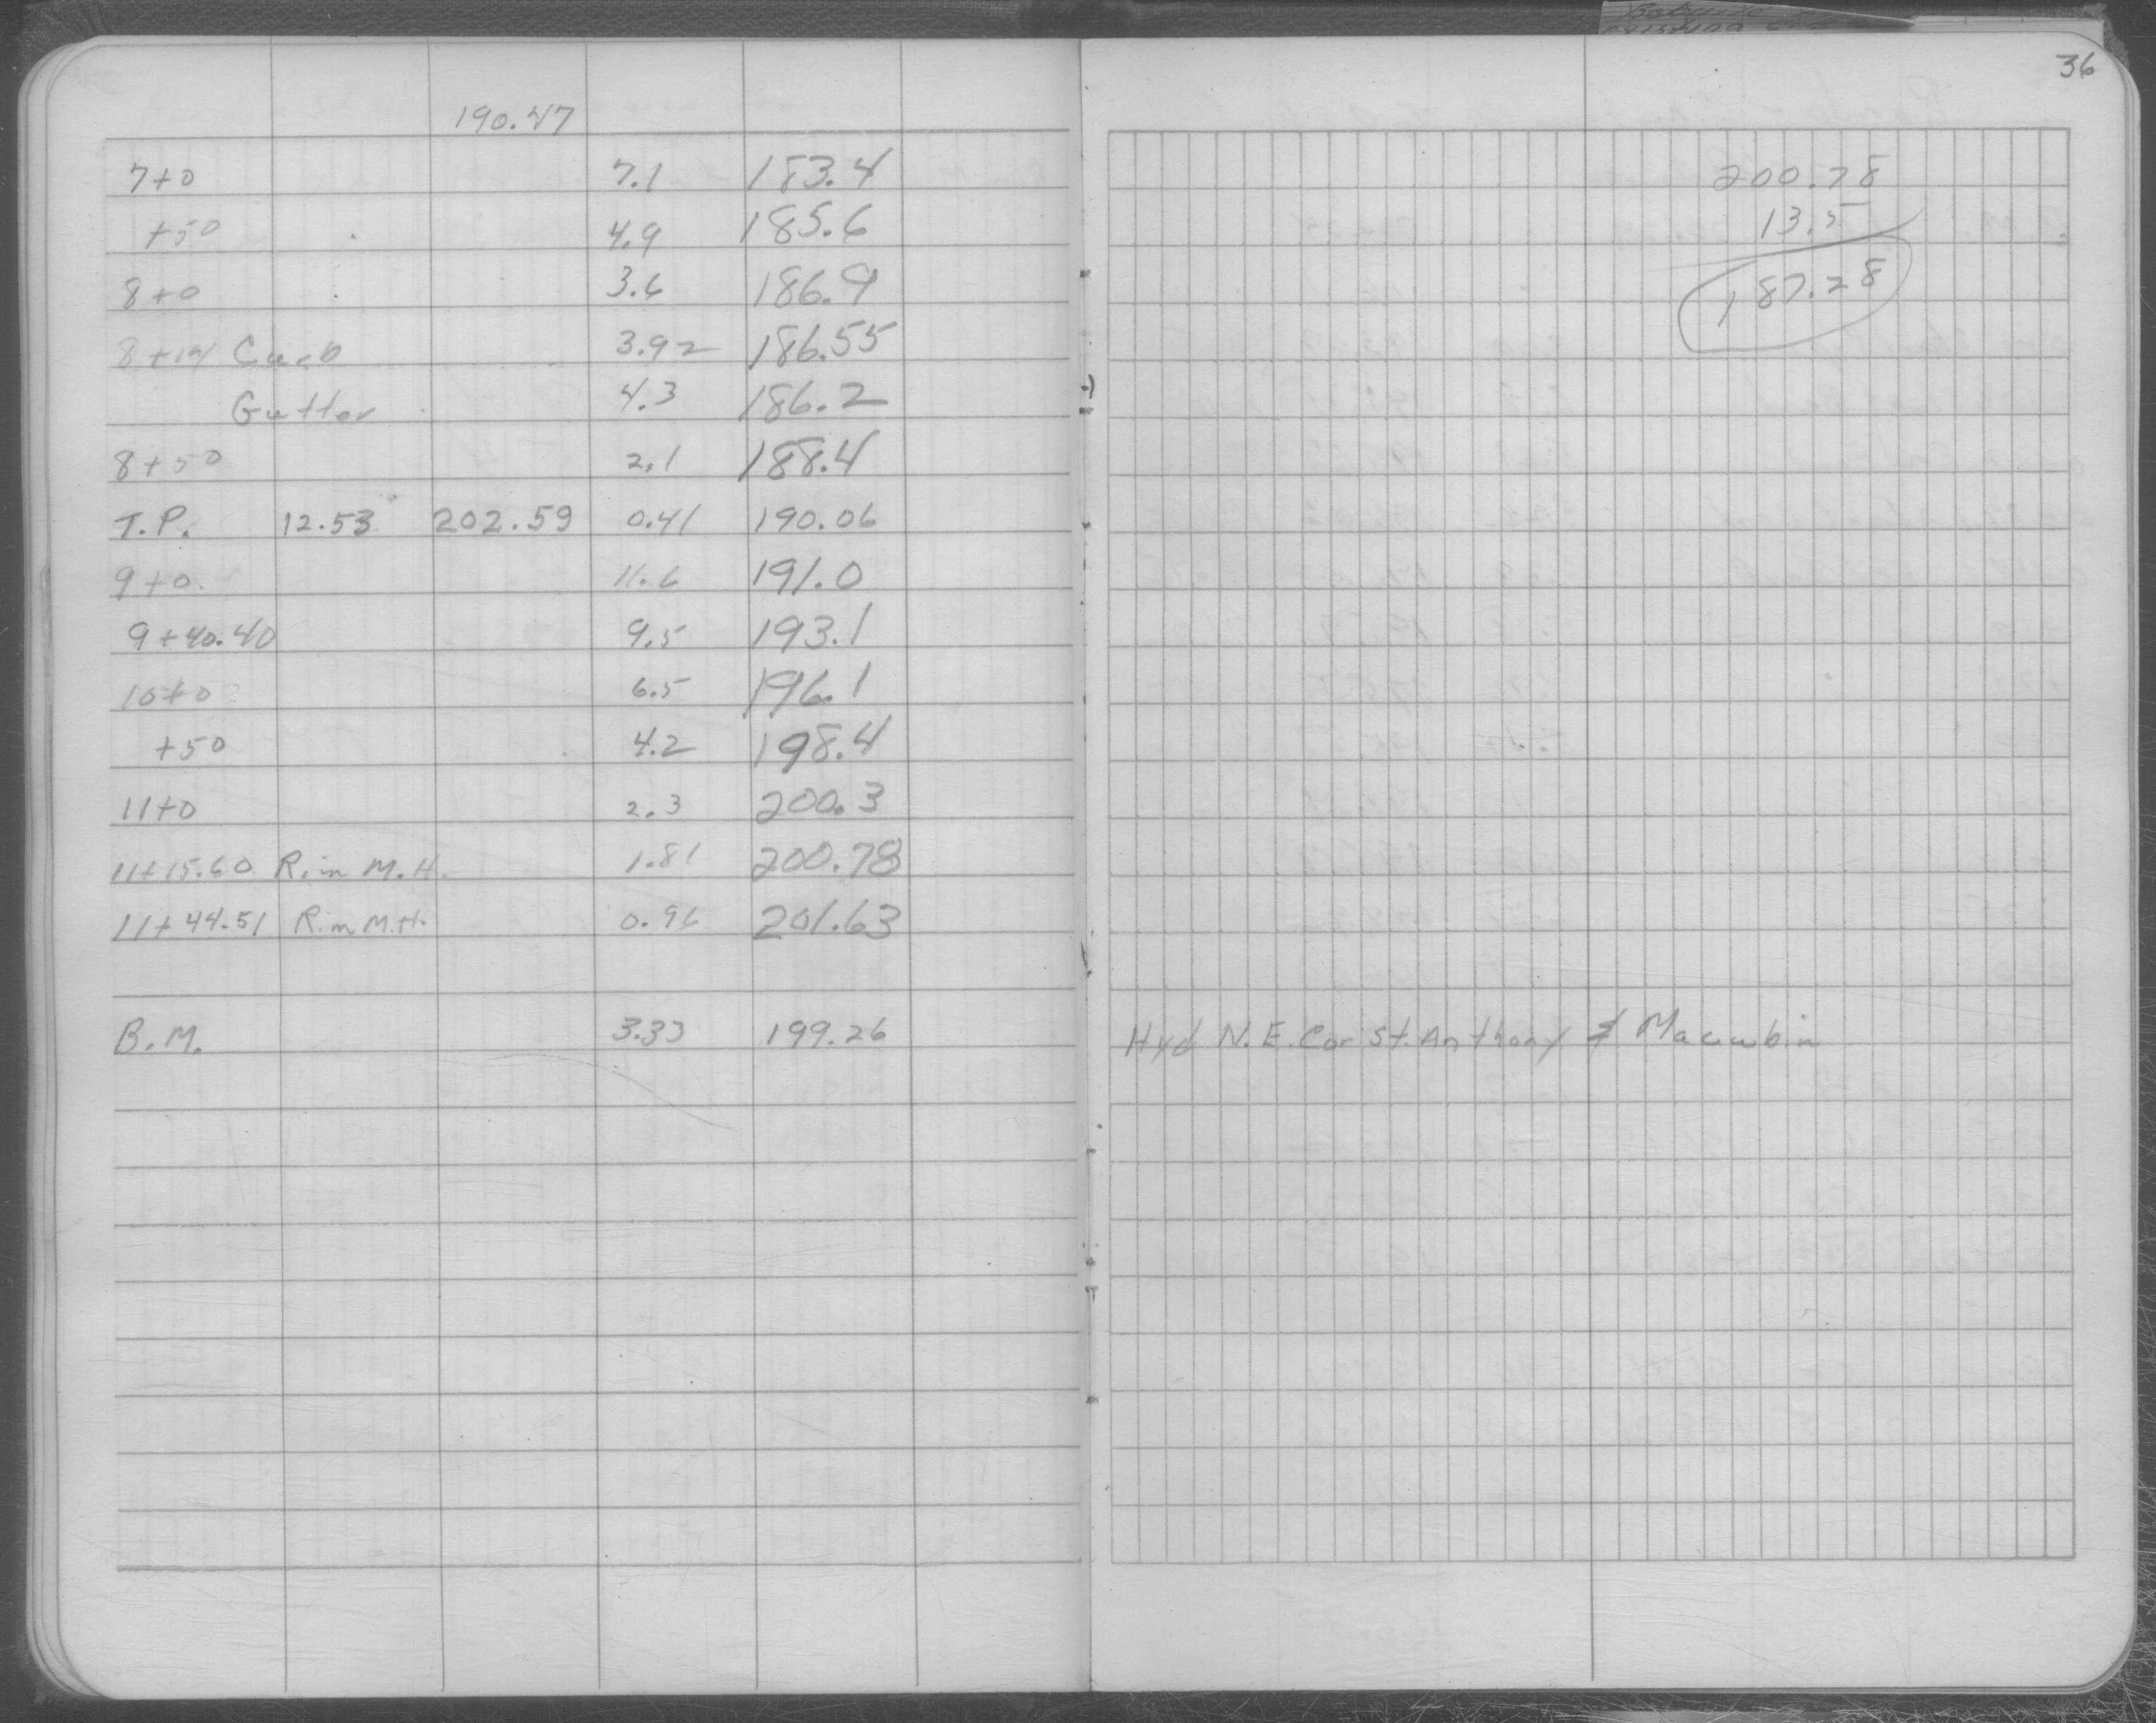 36
190.47
7+0 7.1 183.4
+50 4.9 185.6
8+0 3.6 186.9
8+14 Curb 3.92 186.55
Gutter 4.3 186.2
8+50 2.1 188.4
T.P. 12.53 202.59 0.41 190.06
9+0 11.6 191.0
9+40.40 9.5 193.1
10+0 6.5 196.1
+50 4.2 198.4
11+0 2.3 200.3
11+15.60 Rim M.H. 1.81 200.78
11+44.51 Rim M.H. 0.96 201.63
B.M. 3.33 199.26 Hyd N.E. Cor St. Anthony & Macubin
200.78
13.5
187.28